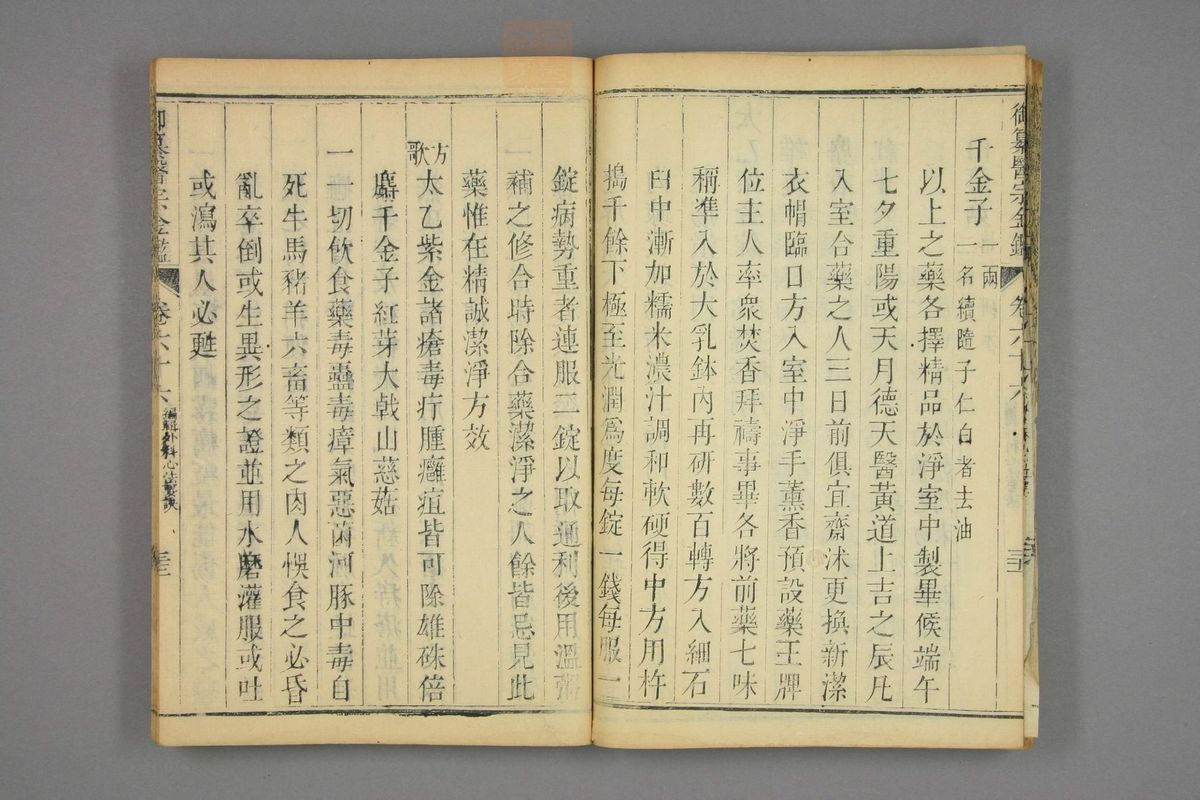 御纂醫宗金鑑
卷六十六
千金子一兩一名續隨子仁白者去油
以上之藥各擇精品於淨室中製畢候端午
七夕重陽或天月德天醫黃道上吉之辰凡
入室合藥之人三日前俱宜齋沐更換新潔
衣帽臨日方入室中淨手薰香預設藥王牌
位主人率衆焚香拜禱事畢各將前藥七味
稱準入於大乳鉢內再研數百轉方入細石
臼中漸加糯米濃汁調和軟硬得中方用杵
搗千餘下極至光潤爲度每錠一錢每服一
錠病勢重者連服二錠以取通利後用溫粥
補之修合時除合藥潔淨之人餘皆忌見此
藥惟在精誠潔淨方效
方歌
太乙紫金諸瘡毒疔腫癰疽皆可除雄硃倍
麝千金子紅芽大戟山慈菇
一一切飲食藥毒蠱毒瘴氣惡菌河豚中毒自
死牛馬豬羊六畜等類之肉人悞食之必昏
亂卒倒或生異形之證並用水磨灌服或吐
或瀉其人必甦
御纂醫宗金鑑
卷六十六
編輯外科心法要訣